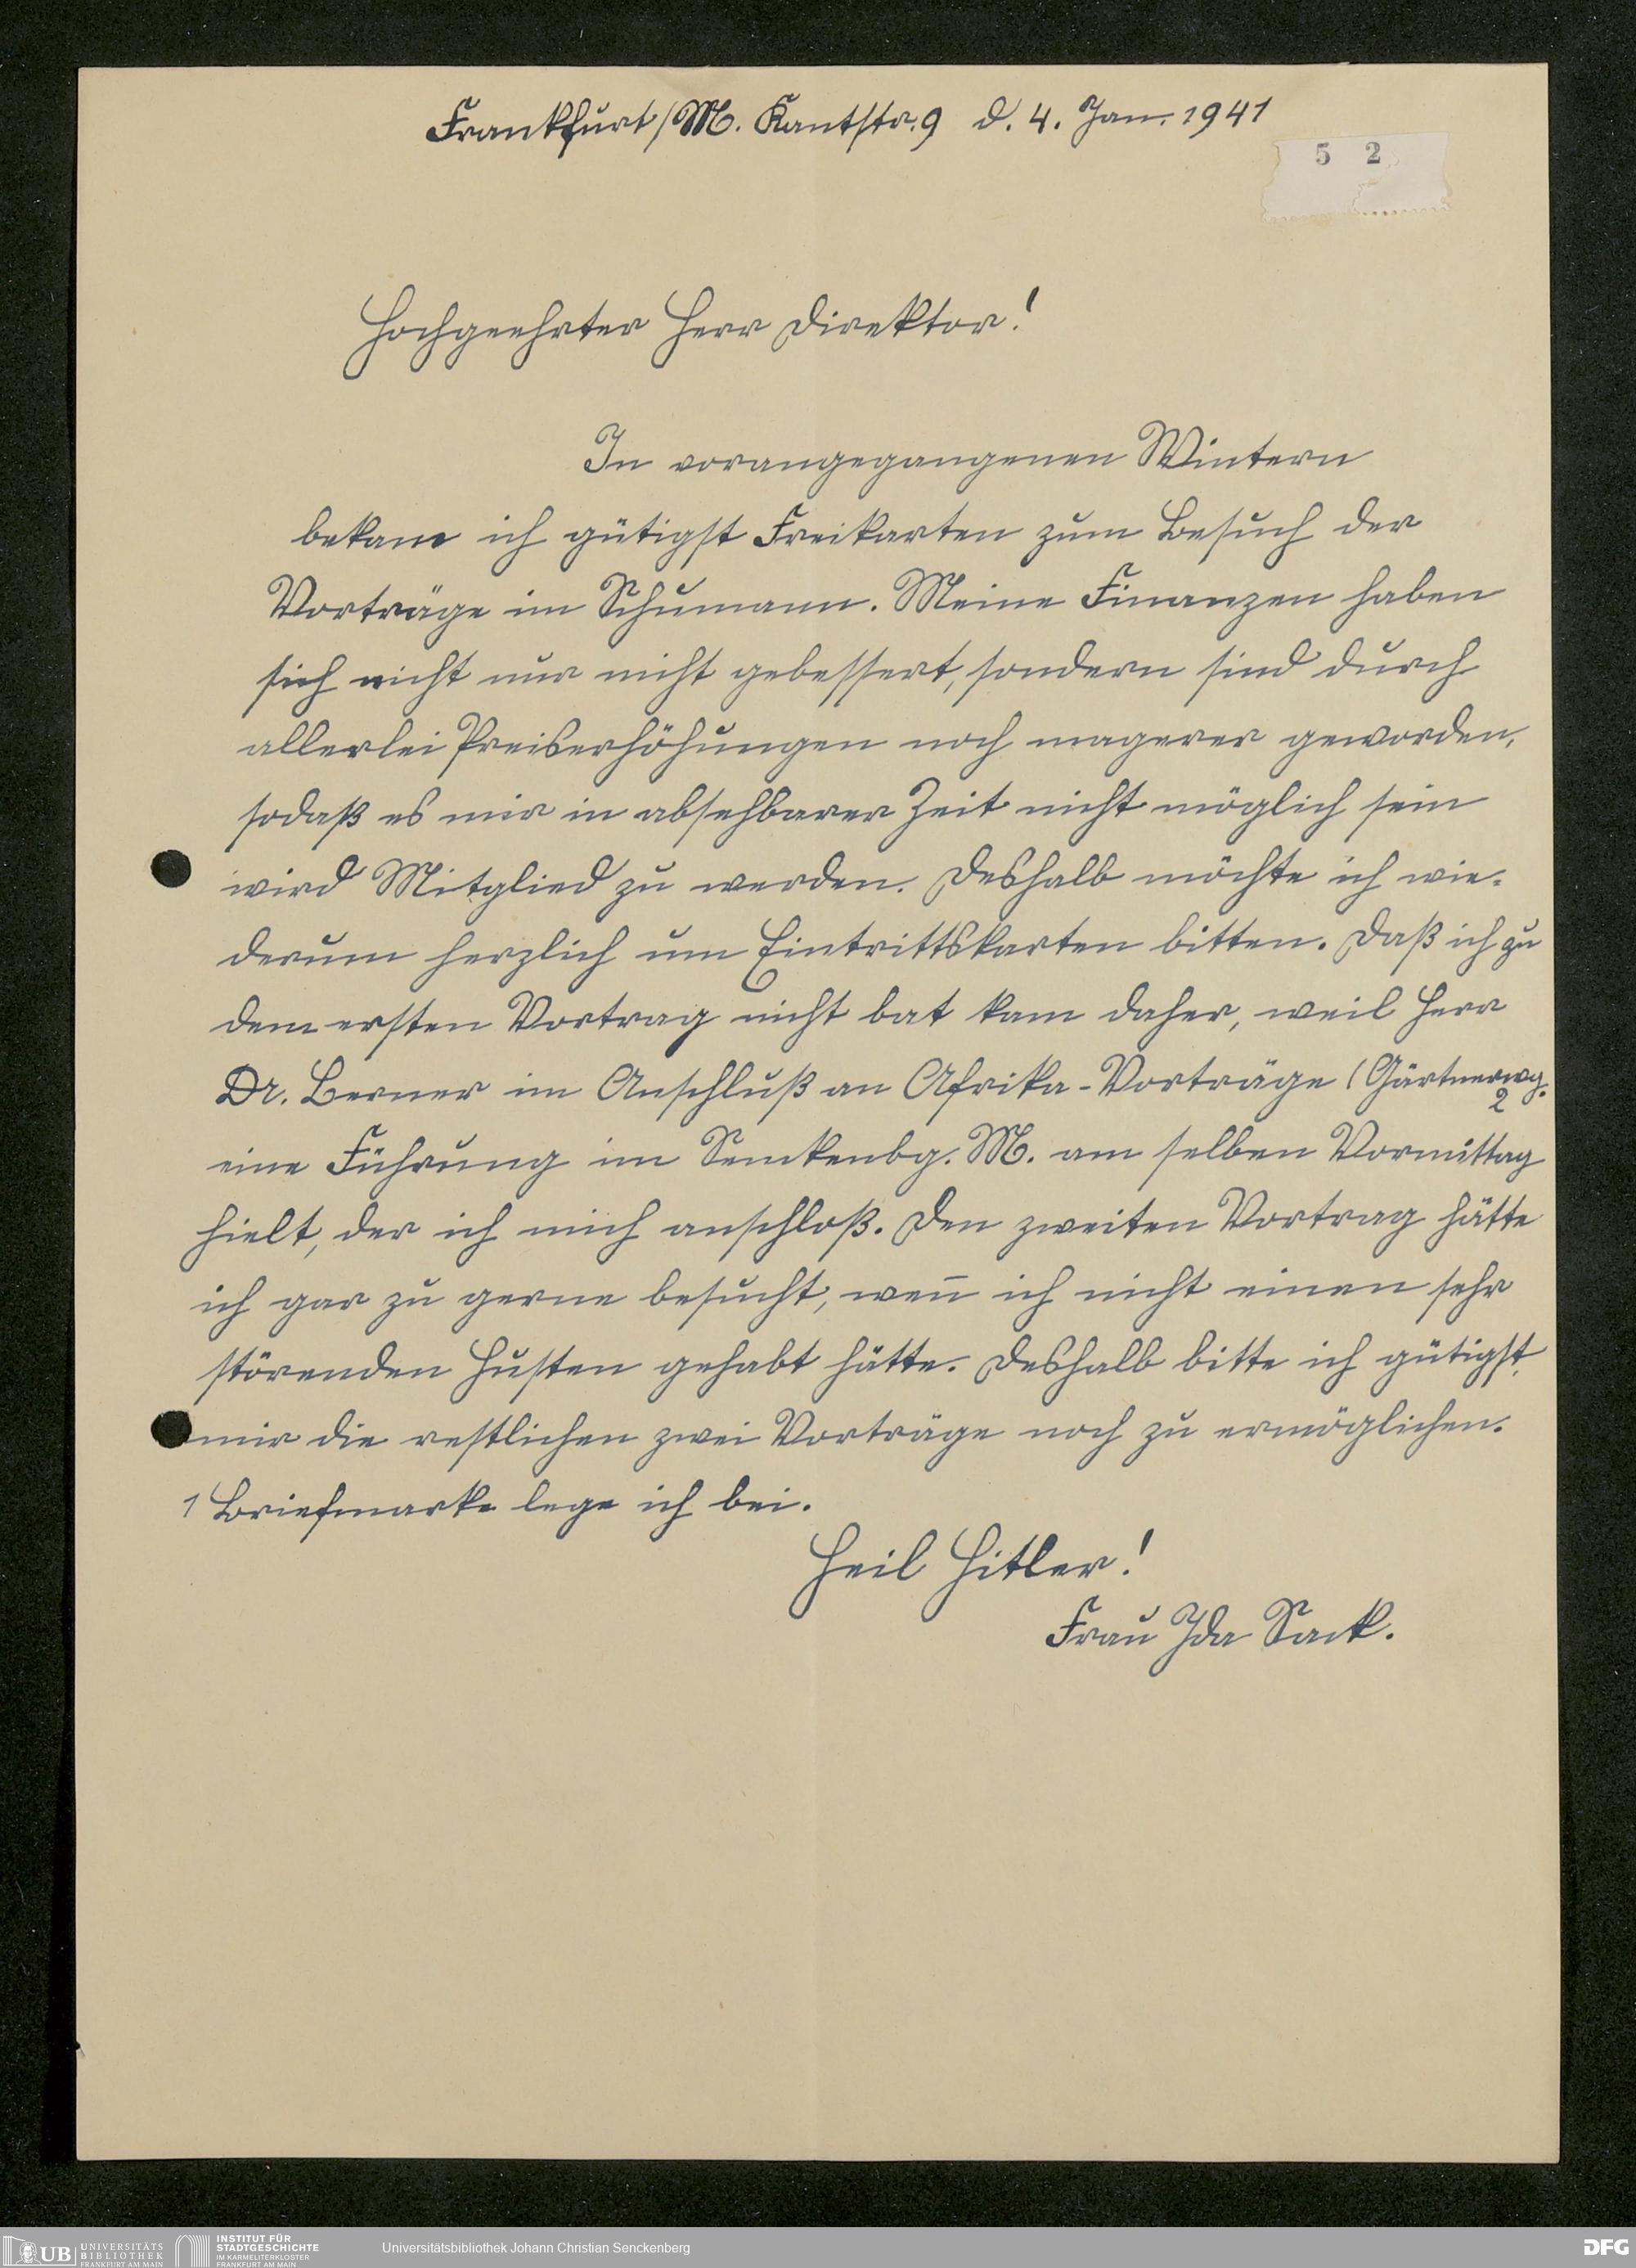 Frankfurt/M. Kantstr. 9 d. 4. Jan. 1941
5 2
Hochgeehrter Herr Direktor!
In vorangegangenen Wintern
bekam ich gütigst Freikarten zum Besuch der
Vorträge im Schumann. Meine Finanzen haben
sich nicht nur nicht gebessert, sondern sind durch
allerlei Preiserhöhungen noch magerer geworden,
sodaß es mir in absehbarer Zeit nicht möglich sein
wird Mitglied zu werden. Deshalb möchte ich wie-
derum herzlich um Eintrittskarten bitten. Daß ich zu
dem ersten Vortrag nicht bat kam daher, weil Herr
Dr. Berner im Anschluß an Afrika-Vorträge (Gärtnerwg.
2
eine Führung im Senkenbg. M. am selben Vormittag
hielt, der ich mich anschloß. Den zweiten Vortrag hätte
ich gar zu gerne besucht, wen̄ ich nicht einen sehr
störenden Husten gehabt hätte. Deshalb bitte ich gütigst,
mir die restlichen zwei Vorträge noch zu ermöglichen.
1 Briefmarke lege ich bei.
Heil Hitler!
Frau Ida Sack.
UB UNIVERSITÄTS
BIBLIOTHEK
FRANKFURT AM MAIN
INSTITUT FÜR
STADTGESCHICHTE
IM KARMELITERKLOSTER
FRANKFURT AM MAIN
Universitätsbibliothek Johann Christian Senckenberg
DFG